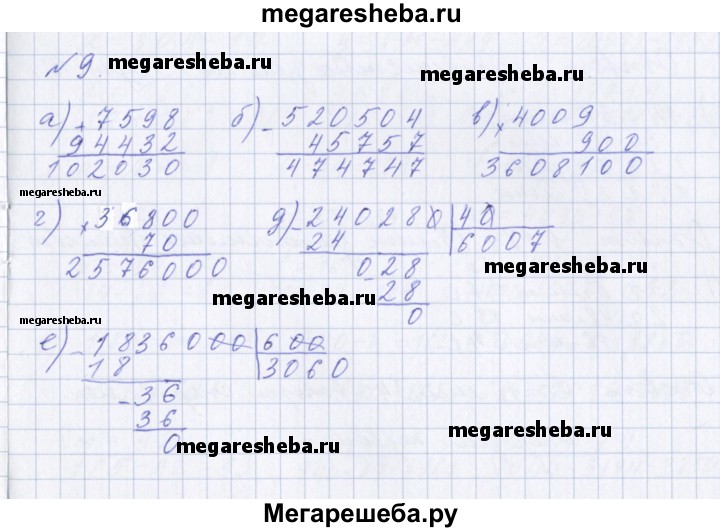 megaresheba.ru
№ 9. megaresheba.ru megaresheba.ru
а) + 7598
94432
102030
б) - 520504
45757
474747
в) × 4009
900
3608100
megaresheba.ru
г) × 36800
70
2576000
д) - 240280 | 40
24 | 6007
028
- 28
0
megaresheba.ru
megaresheba.ru
megaresheba.ru
е) - 1836000 | 600
18 | 3060
- 36
36
0
megaresheba.ru
megaresheba.ru
Мегарешеба.ру